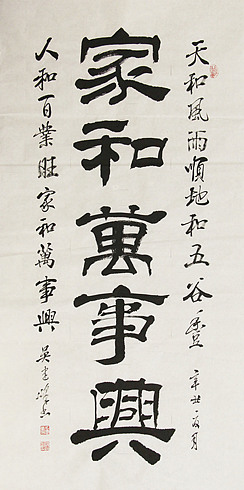 天和風雨順地和五谷豐 辛丑
家和萬事興
人和百業旺家和萬事興 吴